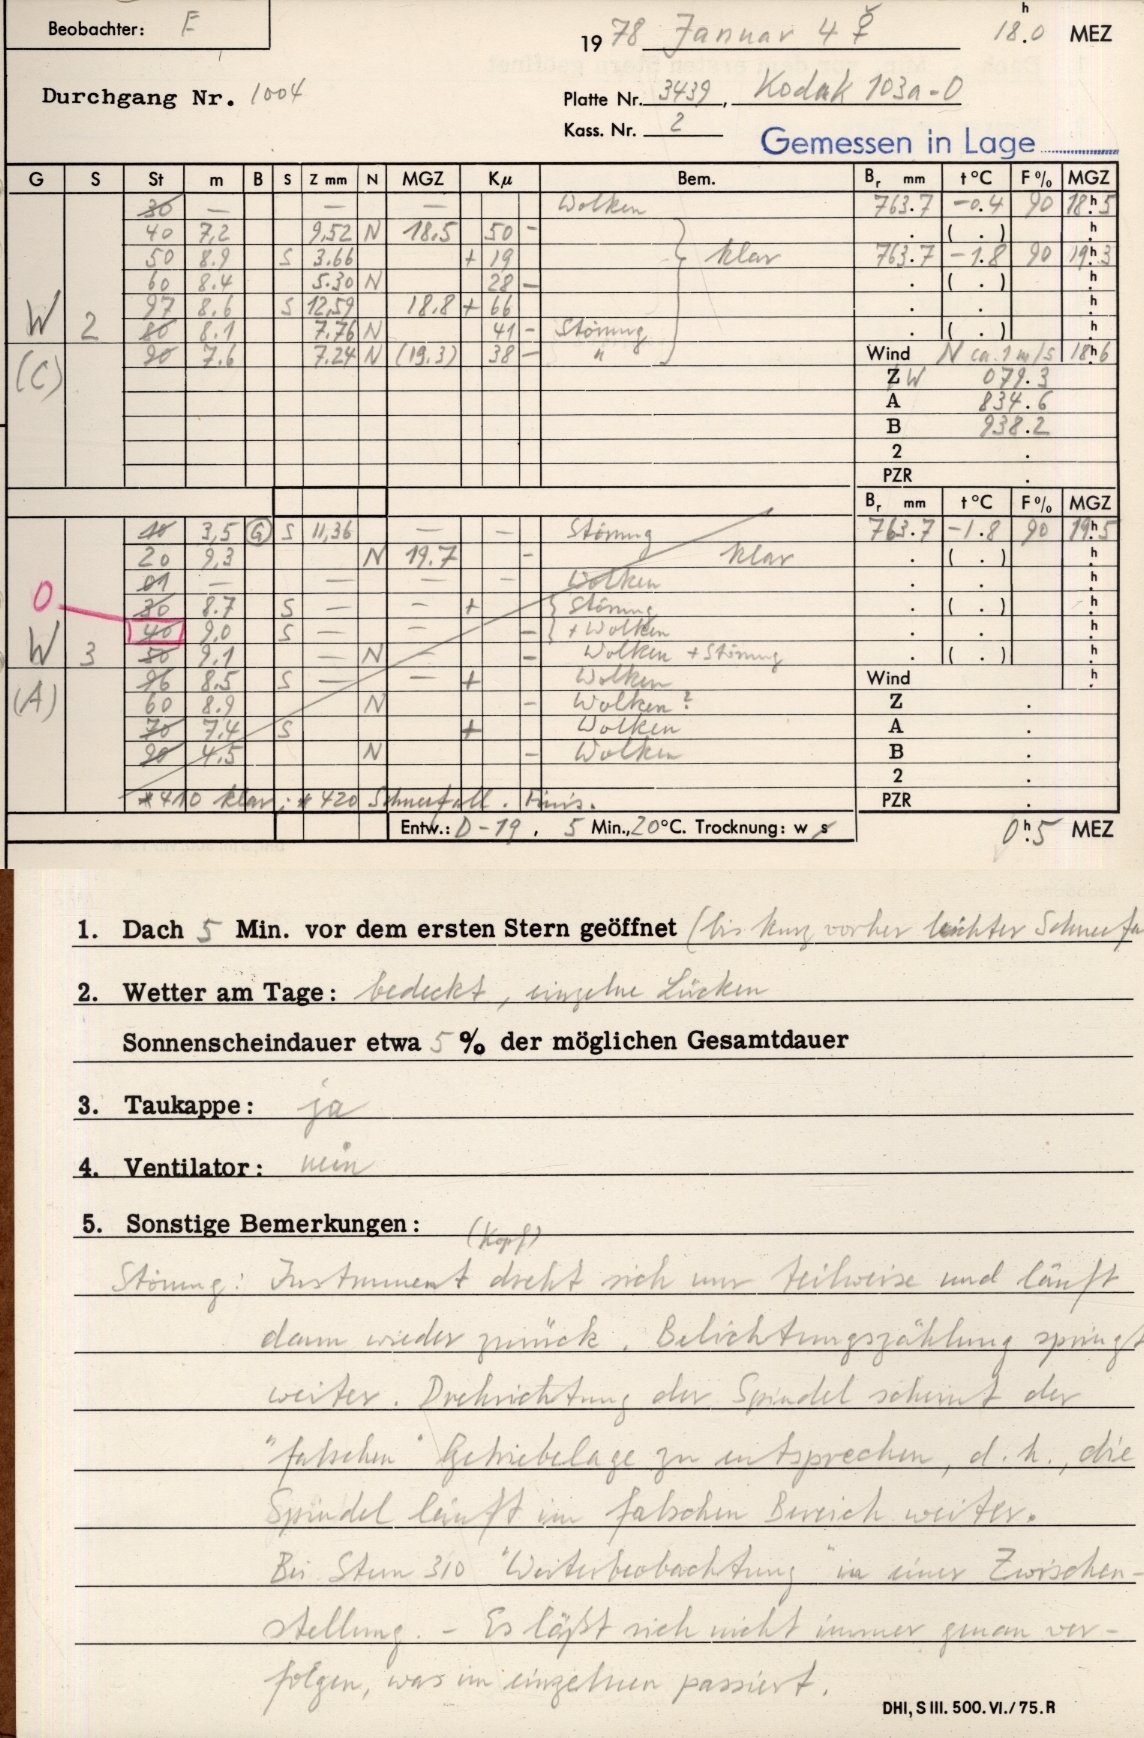 Beobachter: F
19 78 Januar 4 ☿ 18.0 h MEZ
Durchgang Nr. 1004
Platte Nr. 3439, Kodak 103a-O
Kass. Nr. 2
Gemessen in Lage
G S St m B S Z mm N MGZ Kμ Bem. Br mm t °C F % MGZ
30 — — — Wolken 763.7 -0.4 90 18h5
40 7,2 9,52 N 18.5 50 - . ( . ) h
50 8.9 S 3.66 + 19 klar 763.7 -1.8 90 19h3
60 8.4 5.30 N 28 - . ( . ) h
97 8.6 S 12,59 18.8 + 66 . . h
W 2 80 8.1 7.76 N 41 - Störung . ( . ) h
(C) 90 7.6 7.24 N (19.3) 38 - " Wind N ca. 1 m/s 18h6
Z W 079.3
A 834.6
B 938.2
2 .
PZR .
Br mm t °C F % MGZ
10 3,5 G S 11,36 — — Störung 763.7 -1.8 90 19h5
20 9,3 N 19.7 - klar . ( . ) h
01 — — — — Wolken . . h
O 30 8.7 S — — + Störung . ( . ) h
40 9.0 S — — - + Wolken . . h
W 3 50 9.1 — N — - Wolken + Störung . ( . ) h
(A) 96 8.5 S — — + Wolken Wind h
60 8.9 N - Wolken? Z .
70 7.4 S + Wolken A .
90 4.5 N - Wolken B .
2 .
* 410 klar; * 420 Schneefall. Finis. PZR .
Entw.: D-19, 5 Min., 20°C. Trocknung: w s 0h5 MEZ
1. Dach 5 Min. vor dem ersten Stern geöffnet (bis kurz vorher leichter Schneefa
2. Wetter am Tage: bedeckt, einzelne Lücken
Sonnenscheindauer etwa 5 % der möglichen Gesamtdauer
3. Taukappe: ja
4. Ventilator: nein
5. Sonstige Bemerkungen:
(Kopf)
Störung: Instrument dreht sich nur teilweise und läuft
dann wieder zurück. Belichtungszählung springt
weiter. Drehrichtung der Spindel scheint der
"falschen" Getriebelage zu entsprechen, d.h., die
Spindel läuft im falschen Bereich weiter.
Bei Stern 310 "Weiterbeobachtung" in einer Zwischen-
stellung. - Es läßt sich nicht immer genau ver-
folgen, was im einzelnen passiert.
DHI, S III. 500. VI./75. R